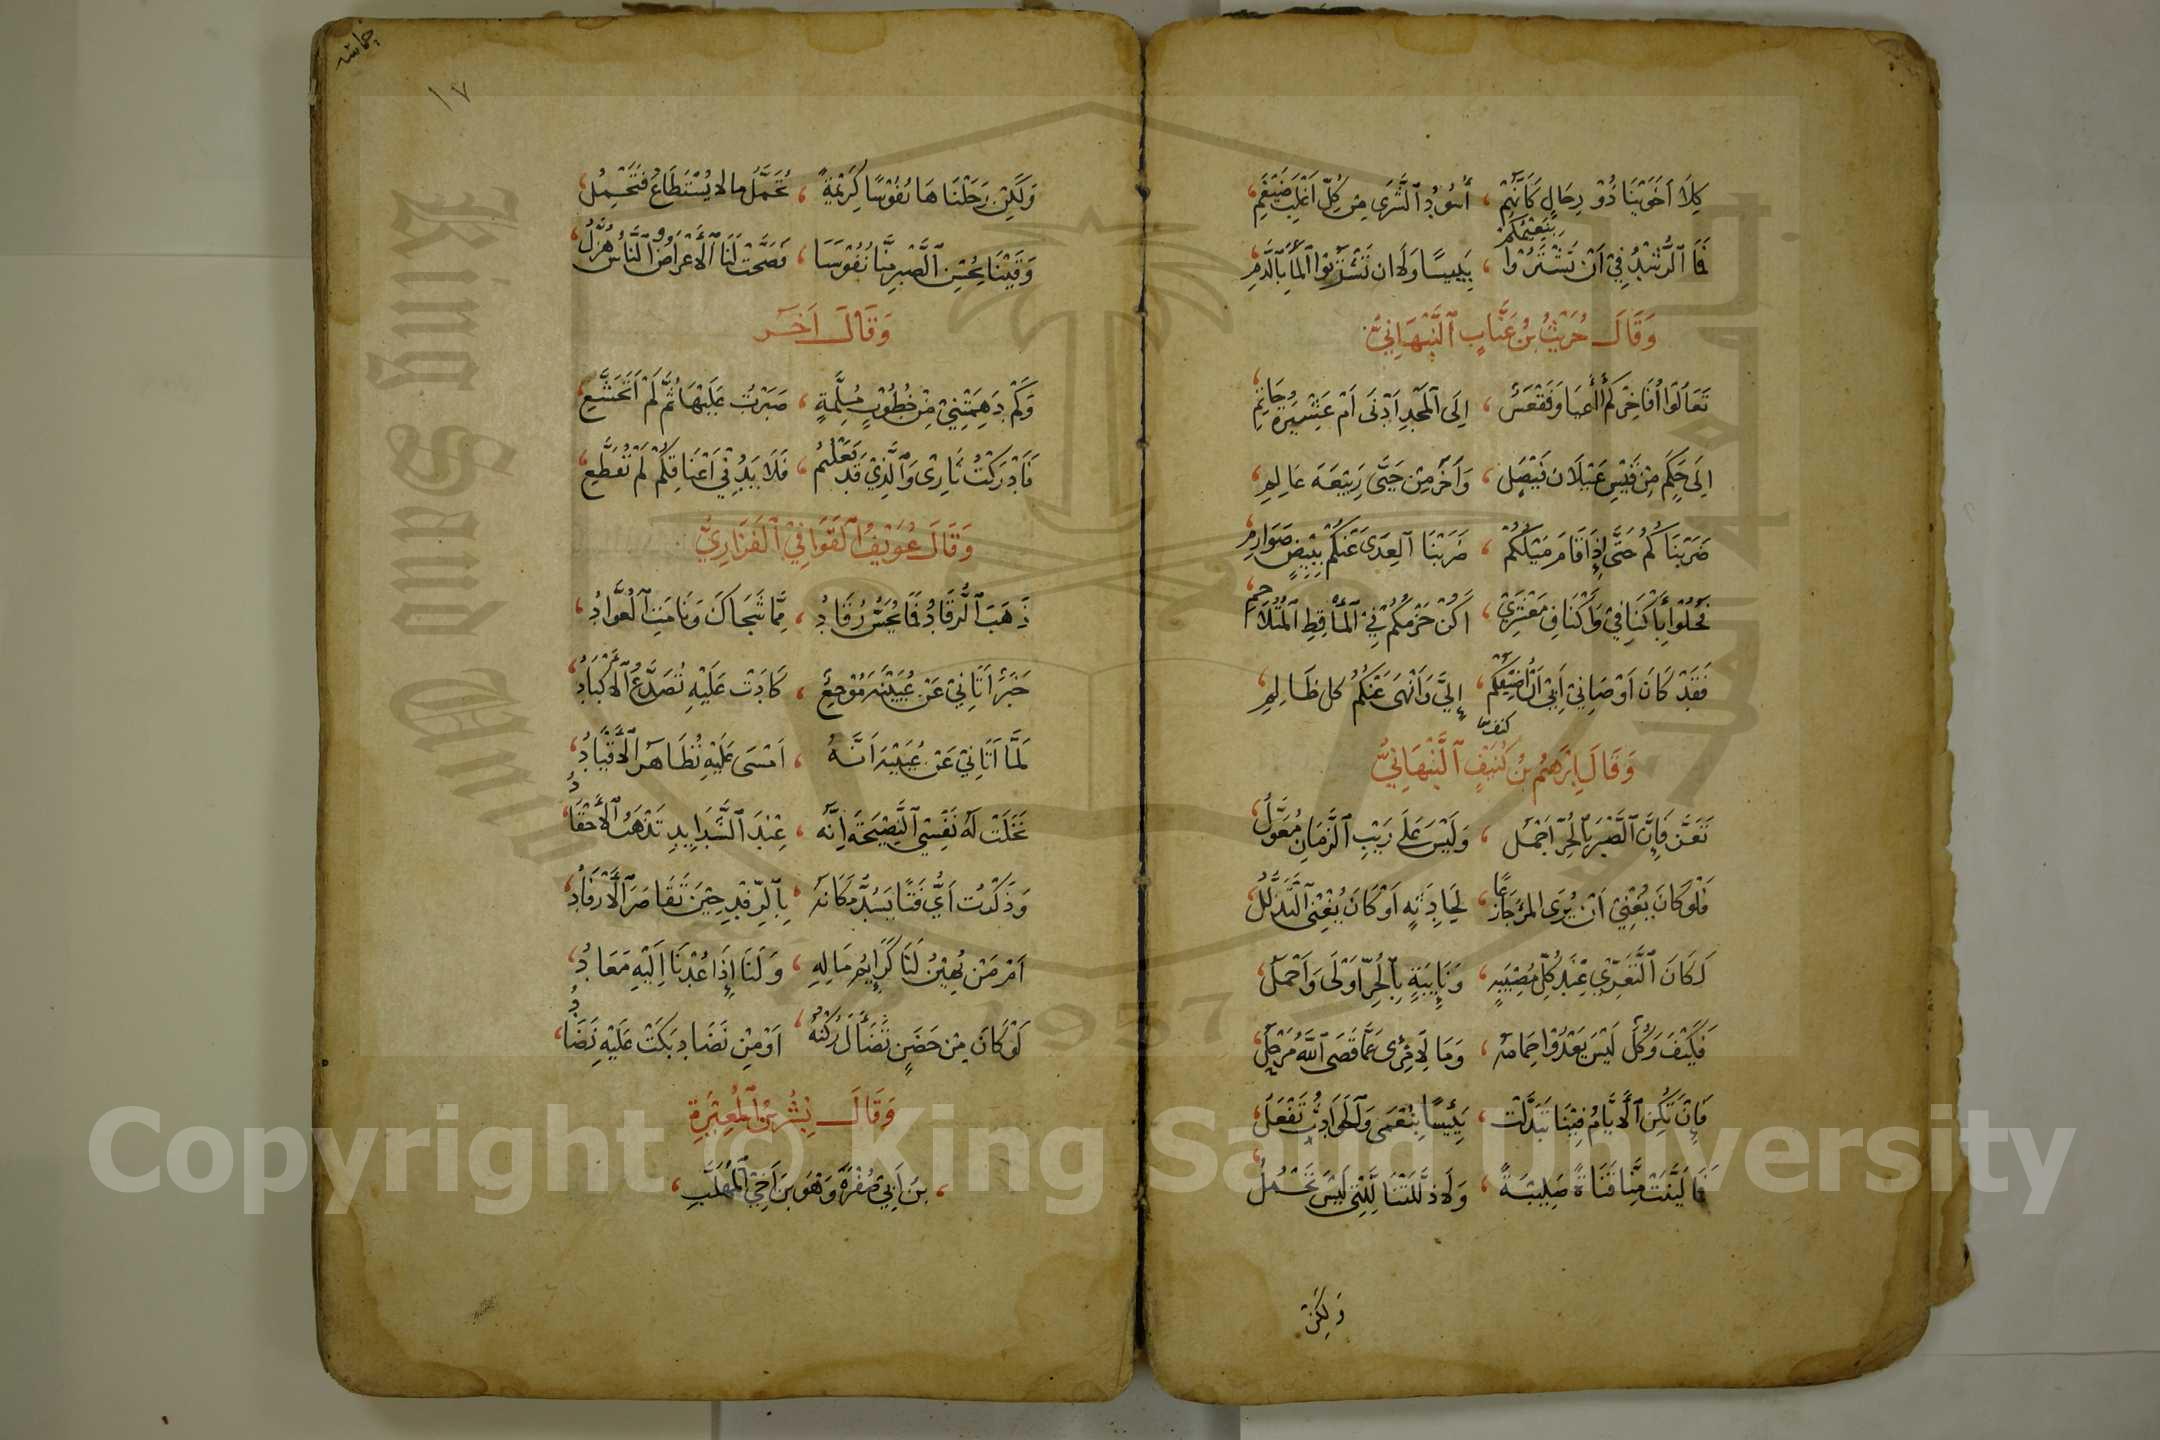 كِلَا أَخَوَيْنَا ذُوْ رِجَالٍ كَأَنَّهُمْ ، أُسُودُ ٱلشَّرَى مِن كُلِّ أَغْلَبَ ضَيْغَمِ
بِنَعِيْمِكُمْ
فَمَا ٱلرُّشْدُ فِيْ أَنْ تَشْتَرُوْا ، بَئِيسًا وَلَا ان تَشْرَبُوا ٱلْمَآءَ بِٱلدَّمِ
وَقَالَ حُرَيْثُ بْنُ عَنَّابٍ ٱلنَّبْهَانِيُّ
تَعَالَوْا أُفَاخِرْكُمْ أَأَعْيَا وَفَقْعَسٌ ، إِلَى ٱلْمَجْدِ أَدْنَى أَمْ عَشِيْرَةُ حَاتِمِ
إِلَى حَكَمٍ مِنْ قَيْسِ عَيْلَانَ فَيْصَلٍ ، وَآخَرَ مِنْ حَيَّىْ رَبِيْعَةَ عَالِمِ
ضَرَبْنَاكُمُ حَتَّى إِذَا قَامَ مَيْلُكُمْ ، ضَرَبْنَا ٱلعِدَى عَنْكُمْ بِبِيْضٍ صَوَارِمِ
فَحُلُّوْا بِأَكْنَافِيْ وَأَكْنَافِ مَعْشَرِيْ ، أَكُنْ حَرْزَكُمْ فِي ٱلْمَأْقِطِ ٱلْمُتَلَاحِمِ
فَقَدْ كَانَ أَوْصَانِيْ أَبِيْ أَنْ أُضِيْفَكُمْ ، إِلَيَّ وَأَنْهَى عَنْكُمُ كل ظَالِمِ
كنف
وَقَالَ إِبْرٰهِيمُ بْنُ كُنَيْفٍ ٱلنَّبْهَانِيُّ
تَعَزَّ فَإِنَّ ٱلصَّبْرَ بِٱلْحُرِّ أَجْمَلُ ، وَلَيْسَ عَلَى رَيْبِ ٱلزَّمَانِ مُعَوَّلُ
فَلَوْ كَانَ يُغْنِيْ أَنْ يُرَى المَرْءُ جَازِعًا ، لِحَادِثَةٍ أَوْ كَانَ يُغْنِي ٱلتَّذَلُّلُ
لَكَانَ ٱلتَّعَزِّي عِنْدَ كُلِّ مُصِيْبَةٍ ، وَنَائِبَةٍ بِٱلْحُرِّ أَوْلَى وَأَجْمَلُ
فَكَيْفَ وَكُلٌّ لَيْسَ يَعْدُوْا حِمَامَهُ ، وَمَا لِامْرِئٍ عَمَّا قَضَى ٱللَّهُ مَزْحَلُ
فَإِنْ تَكُنِ ٱلْأَيَّامُ فِيْنَا تَبَدَّلَتْ ، بِبُؤْسَى بِنُعْمَى وَٱلْحَوَادِثُ تَفْعَلُ
فَمَا لَيَّنَتْ مِنَّا قَنَاةً صَلِيْبَةً ، وَلَا ذَلَّلَتْنَا لِلَّتِيْ لَيْسَ تَجْمُلُ
وَلٰكِنْ
حماسه
١٧
وَلٰكِنْ رَحَلْنَاهَا نُفُوْسًا كَرِيْمَةً ، تُحَمَّلُ مالا يُسْتَطَاعُ فَتَحْمِلُ
وَقَيْنَا بِحُسْنِ ٱلصَّبْرِ مِنَّا نُفُوْسَنَا ، فَصَحَّتْ لَنَا ٱلْأَعْرَاضُ وَٱلنَّاسُ هُزَّلُ
وَقَالَ آخَر
وَكَمْ دَهِمَتْنِيْ مِنْ خُطُوْبٍ مُلِمَّةٍ ، صَبَرْتُ عَلَيْهَا ثُمَّ لَمْ أَتَخَشَّعِ
فَأَدْرَكْتُ ثَارِى وَٱلَّذِيْ قَدْ فَعَلْتُمُ ، قَلَائِدُ فِيْ أَعْنَاقِكُمْ لَمْ تُقَطَّعِ
وَقَالَ عُوَيْفُ ٱلْقَوَافِيْ ٱلْفَزَارِيُّ
ذَهَبَ ٱلرُّقَادُ فَمَا يُحَسُّ رُقَادُ ، مِمَّا شَجَاكَ وَنَامَتِ ٱلْعُوَّادُ
خَبَرٌ أَتَانِيْ عَنْ عُيَيْنَةَ مُوْجِعٌ ، كَادَتْ عَلَيْهِ تُصَدَّعُ ٱلْأَكْبَادُ
لَمَّا أَتَانِيْ عَنْ عُيَيْنَةَ أَنَّهُ ، أَمْسَى عَلَيْهِ تُظَاهَرُ ٱلْأَقْيَادُ
نَخَلَتْ لَهُ نَفْسِي ٱلنَّصِيْحَةَ إِنَّهُ ، عِنْدَ ٱلشَّدَايِدِ تَذْهَبُ ٱلْأَحْقَادُ
وَذَكَرْتُ أَيُّ فَتًى يَسُدُّ مَكَانَهُ ، بِٱلرِّفْدِ حِيْنَ تَقَاصَرَ ٱلْأَرْفَادُ
أَمْ مَنْ يُهِيْنُ لَنَا كَرَائِمَ مَالِهِ ، وَلَنَا إِذَا عُدْنَا إِلَيْهِ مَعَادُ
لَوْ كَانَ مِنْ حَضَنٍ تَضَاءَلَ رُكْنُهُ ، أَوْ مِنْ نَضَادِ بَكَتْ عَلَيْهِ نَضَادُ
وَقَالَ بِشْرُ بْنُ ٱلْمُغِيْرَةِ
، بن أَبِيْ صُفْرَةَ وَهُوَ بنَ أَخِيْ ٱلْمُهَلَّبِ ،
King Saud University
1957
Copyright © King Saud University